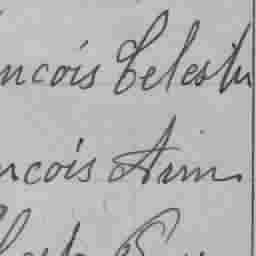 ncois Celestin
ncois Aim